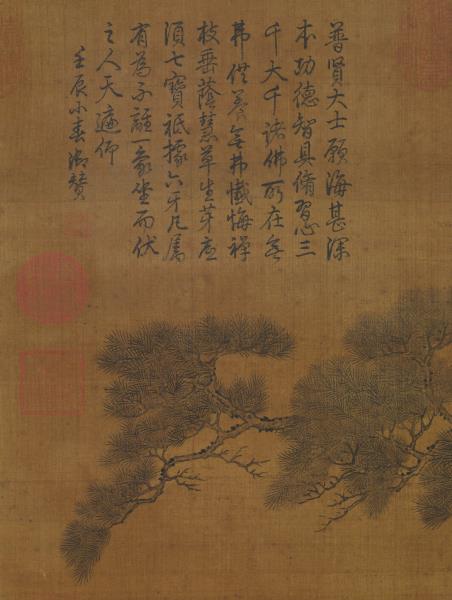 普賢大士願海甚深
本功德智具脩習心三
千大千諸佛所在無
弗供養無弗懺悔禪
枝垂蔭慧草生芽應
須七寶祗據六牙凡屬
有為不離一象坐而伏
之人天遍仰
壬辰小春御贊